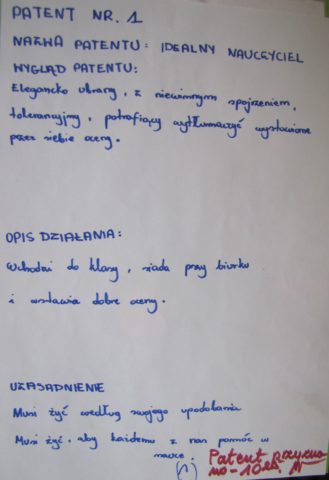 PATENT NR. 1
NAZWA PATENTU: IDEALNY NAUCZYCIEL
WYGLĄD PATENTU:
Elegancko ubrany, z niewinnym spojrzeniem,
tolerancyjny, potrafiący wytłumaczyć wystawione
przez siebie oceny.
OPIS DZIAŁANIA:
Wchodzi do klasy, siada przy biurku
i wstawia dobre oceny.
UZASADNIENIE
Musi żyć według swojego upodobania
Musi żyć, aby każdemu z nas pomóc w
nauce.
(1)
Patent
no - 10